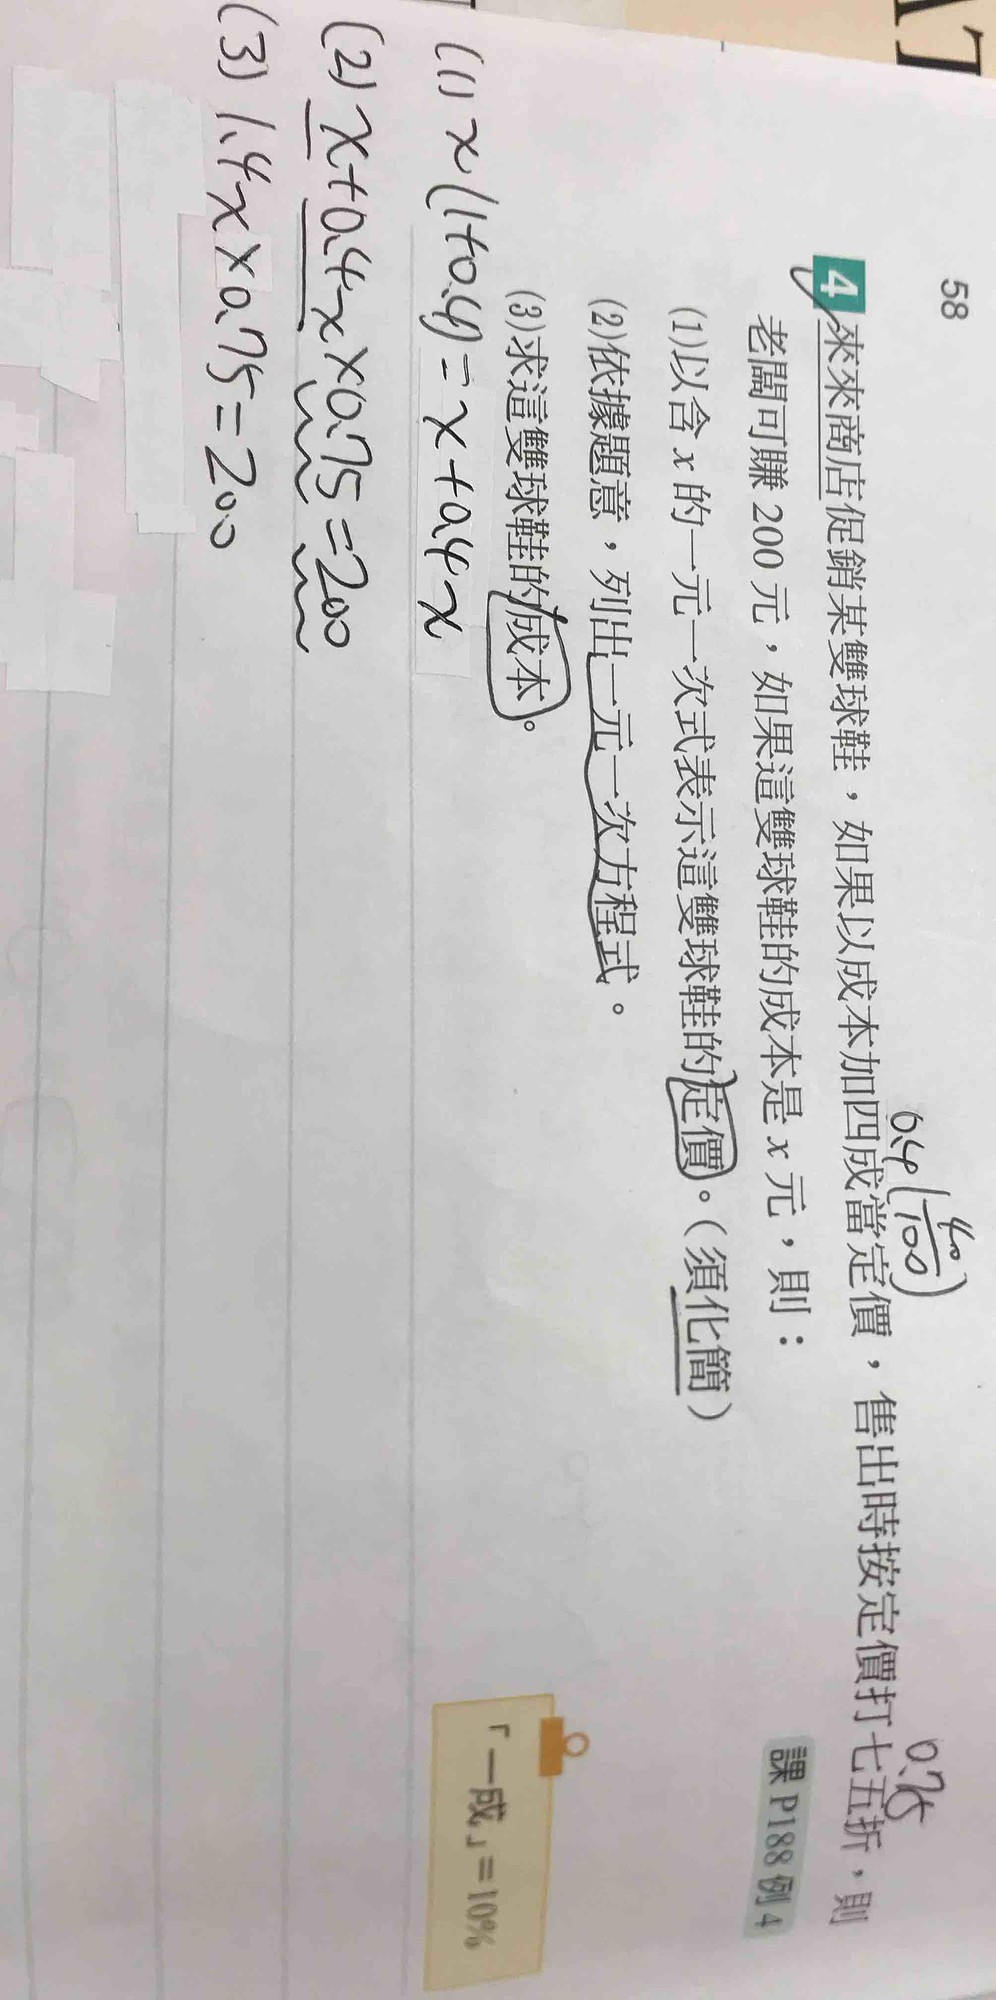 58
0.4 (40/100)
0.75
4 來來商店促銷某雙球鞋，如果以成本加四成當定價，售出時按定價打七五折，則
老闆可賺 200 元，如果這雙球鞋的成本是 x 元，則：
課 P188 例 4
(1)以含 x 的一元一次式表示這雙球鞋的定價。（須化簡）
(2)依據題意，列出一元一次方程式。
(3)求這雙球鞋的成本。
「一成」=10%
(1) x(1+0.4)=x+0.4x
(2) x+0.4x×0.75=200
(3) 1.4x×0.75=200